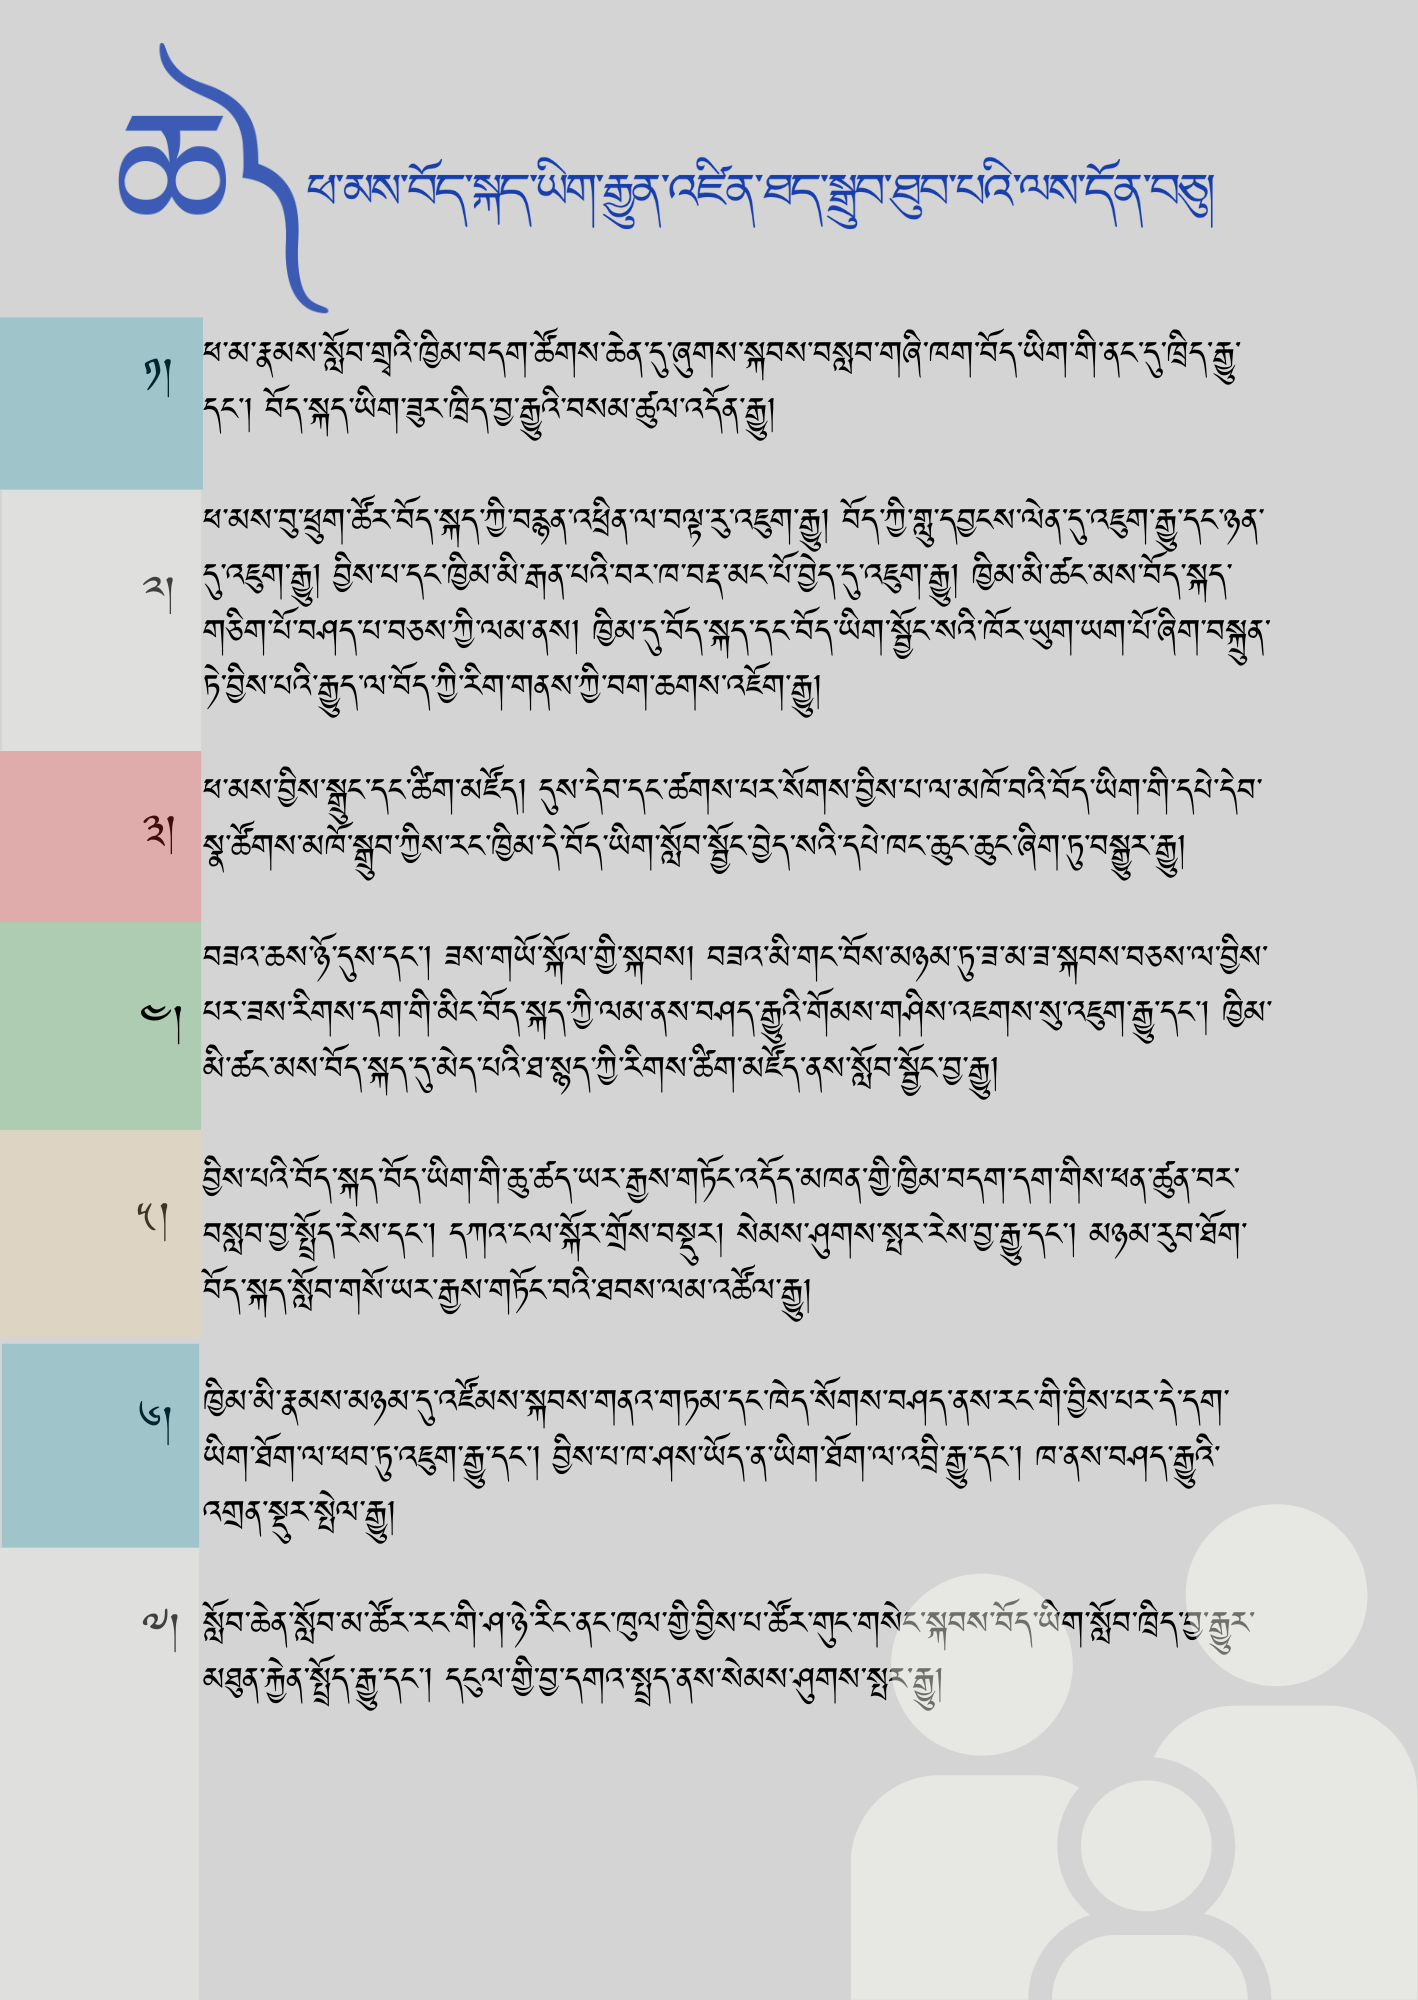 ཕ་མས་བོད་སྐད་ཡིག་རྒྱུན་འཛིན་ཐད་སྒྲུབ་ཐུབ་པའི་ལས་དོན་བཅུ།
༡། ཕ་མ་རྣམས་སློབ་གྲྭའི་ཁྱིམ་བདག་ཚོགས་ཆེན་དུ་ཞུགས་སྐབས་བསླབ་གཞི་ཁག་བོད་ཡིག་གི་ནང་དུ་ཁྲིད་རྒྱུ་
དང༌། བོད་སྐད་ཡིག་ཟུར་ཁྲིད་བྱ་རྒྱུའི་བསམ་ཚུལ་འདོན་རྒྱུ།
ཕ་མས་བུ་ཕྲུག་ཚོར་བོད་སྐད་ཀྱི་བརྙན་འཕྲིན་ལ་བལྟ་རུ་འཇུག་རྒྱུ། བོད་ཀྱི་གླུ་དབྱངས་ལེན་དུ་འཇུག་རྒྱུ་དང་ཉན་
༢། དུ་འཇུག་རྒྱུ། བྱིས་པ་དང་ཁྱིམ་མི་རྒན་པའི་བར་ཁ་བརྡ་མང་པོ་བྱེད་དུ་འཇུག་རྒྱུ། ཁྱིམ་མི་ཚང་མས་བོད་སྐད་
གཅིག་པོ་བཤད་པ་བཅས་ཀྱི་ལམ་ནས། ཁྱིམ་དུ་བོད་སྐད་དང་བོད་ཡིག་སྦྱོང་སའི་ཁོར་ཡུག་ཡག་པོ་ཞིག་བསྐྲུན་
ཏེ་བྱིས་པའི་རྒྱུད་ལ་བོད་ཀྱི་རིག་གནས་ཀྱི་བག་ཆགས་འཇོག་རྒྱུ།
ཕ་མས་བྱིས་སྒྲུང་དང་ཚིག་མཛོད། དུས་དེབ་དང་ཚགས་པར་སོགས་བྱིས་པ་ལ་མཁོ་བའི་བོད་ཡིག་གི་དཔེ་དེབ་
༣། སྣ་ཚོགས་མཁོ་སྒྲུབ་ཀྱིས་རང་ཁྱིམ་དེ་བོད་ཡིག་སློབ་སྦྱོང་བྱེད་སའི་དཔེ་ཁང་ཆུང་ཆུང་ཞིག་ཏུ་བསྒྱུར་རྒྱུ།
བཟའ་ཆས་ཉོ་དུས་དང༌། ཟས་གཡོ་སྐོལ་གྱི་སྐབས། བཟའ་མི་གང་བོས་མཉམ་ཏུ་ཟ་མ་ཟ་སྐབས་བཅས་ལ་བྱིས་
༤། པར་ཟས་རིགས་དག་གི་མིང་བོད་སྐད་ཀྱི་ལམ་ནས་བཤད་རྒྱུའི་གོམས་གཤིས་འཇགས་སུ་འཇུག་རྒྱུ་དང༌། ཁྱིམ་
མི་ཚང་མས་བོད་སྐད་དུ་མེད་པའི་ཐ་སྙད་ཀྱི་རིགས་ཚིག་མཛོད་ནས་སློབ་སྦྱོང་བྱ་རྒྱུ།
བྱིས་པའི་བོད་སྐད་བོད་ཡིག་གི་ཆུ་ཚད་ཡར་རྒྱས་གཏོང་འདོད་མཁན་གྱི་ཁྱིམ་བདག་དག་གིས་ཕན་ཚུན་བར་
༥། བསླབ་བྱ་སྤྲོད་རེས་དང༌། དཀའ་ངལ་སྐོར་གྲོས་བསྡུར། སེམས་ཤུགས་སྤར་རེས་བྱ་རྒྱུ་དང༌། མཉམ་རུབ་ཐོག་
བོད་སྐད་སློབ་གསོ་ཡར་རྒྱས་གཏོང་བའི་ཐབས་ལམ་འཚོལ་རྒྱུ།
༦། ཁྱིམ་མི་རྣམས་མཉམ་དུ་འཛོམས་སྐབས་གནའ་གཏམ་དང་ཁེད་སོགས་བཤད་ནས་རང་གི་བྱིས་པར་དེ་དག་
ཡིག་ཐོག་ལ་ཕབ་ཏུ་འཇུག་རྒྱུ་དང༌། བྱིས་པ་ཁ་ཤས་ཡོད་ན་ཡིག་ཐོག་ལ་འབྲི་རྒྱུ་དང༌། ཁ་ནས་བཤད་རྒྱུའི་
འགྲན་སྡུར་སྤེལ་རྒྱུ།
༧། སློབ་ཆེན་སློབ་མ་ཚོར་རང་གི་ཤ་ཉེ་རིང་ནང་ཁུལ་གྱི་བྱིས་པ་ཚོར་གུང་གསེང་སྐབས་བོད་ཡིག་སློབ་ཁྲིད་བྱ་རྒྱུར་
མཐུན་རྐྱེན་སྤྲོད་རྒྱུ་དང༌། དངུལ་གྱི་བྱ་དགའ་སྤྲད་ནས་སེམས་ཤུགས་སྤར་རྒྱུ།